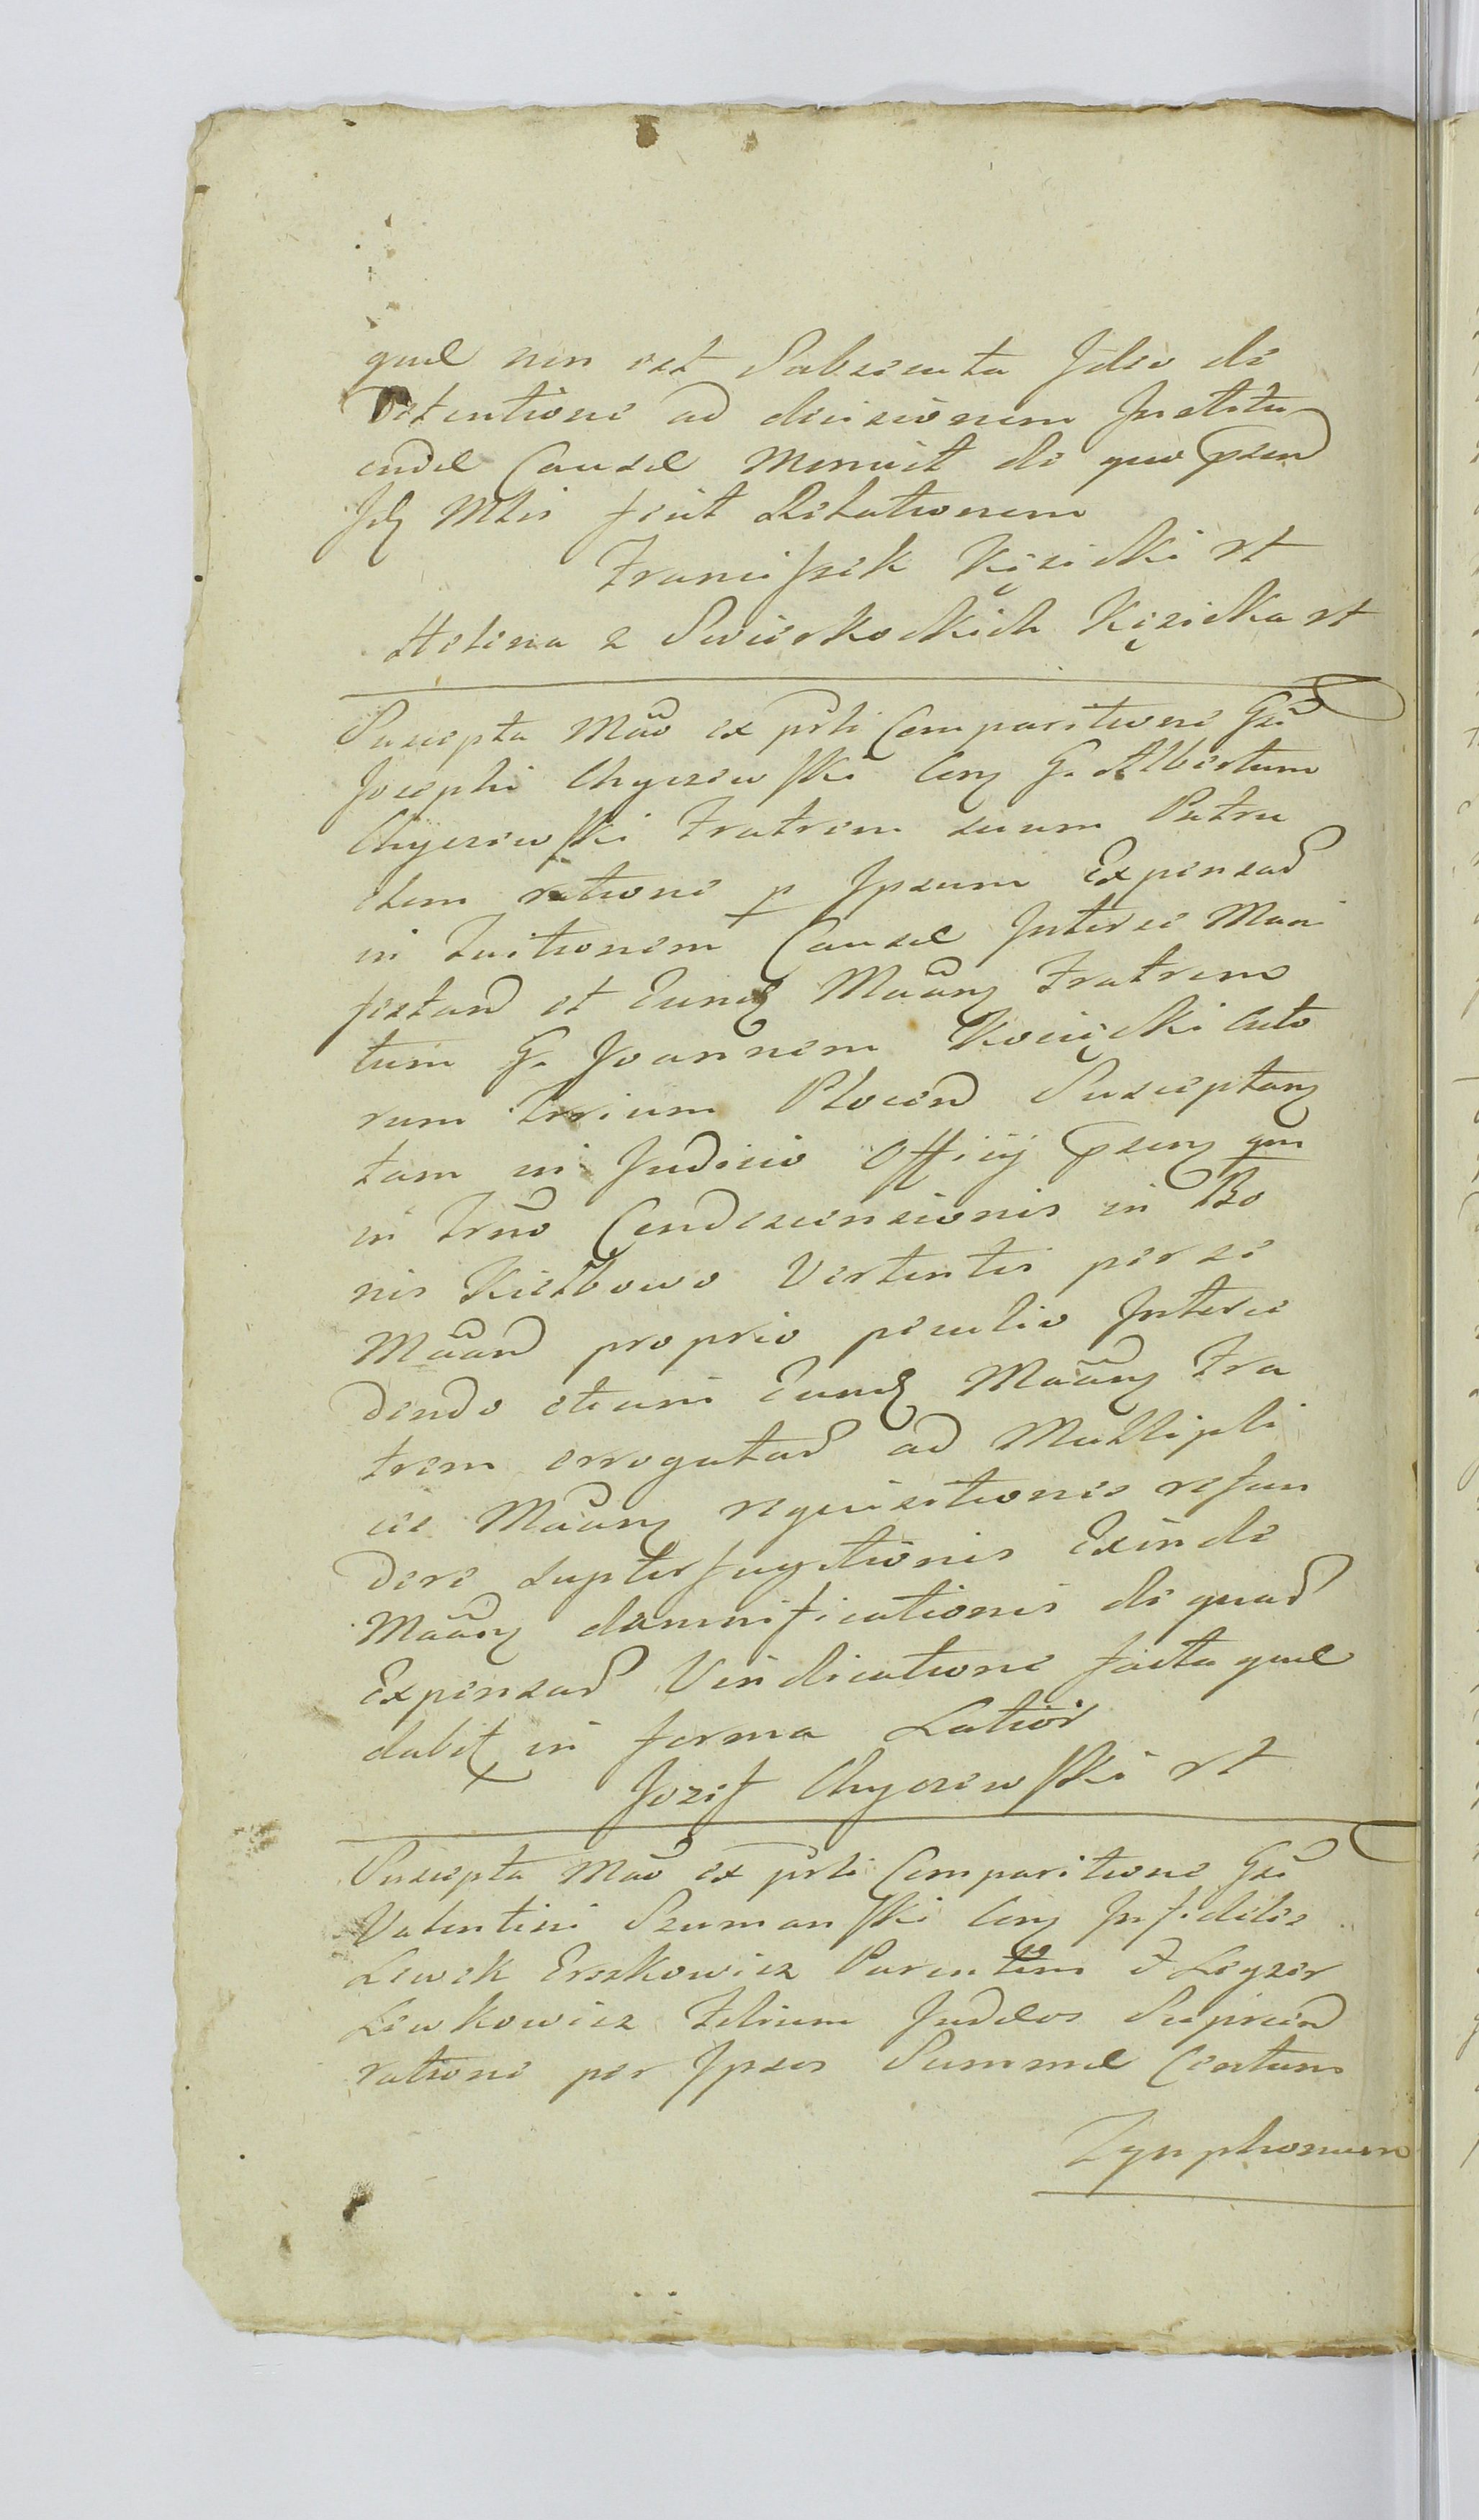 quæ non est Subsecuta Ideo de
Detentione ad decisionem Institu
endæ Causæ Monuit de quo psend
Idq Mtis fecit Relationem
Franciszek Kęsicki rt
Helena z Swierkockich Kęsicka rt
Suscepta Mão ex psti Comparitione Gsi
Josephi Chyczewski Conq G. Albertum
Chyczewski Fratrem suum Patru
elem ratione p Ipsum Expensad
in Tuitionem Causæ Inter se Mani
festand et Eundq Mãanq Fratrem
tum G. Joannem Kosięcki Acto
rum Trium Plocend Susceptanq
tam in Judicio Officij psenq qm
in Trno Condescensionis in Bo
nis Kiełbowo Vertentis per se
Mãand proprio peculio Interce
dendo etiam Eundq Mãanq Fra
trem errogatad ad Multipli
ces Mãanq requisitiones refun
dere supterfugitionis Exinde
Mãanq damnificationis de quad
Expensad Vindicatione facta quæ
dabit in forma Latiori
Jozef Chyczewski rt
Suscepta Mão ex psti Comparitione Gsi
Valentini Szumanski Conq Infideles
Lewek Erszkowicz Parentem & Leyzer
Lewkowicz Filium Judæos Supiend
ratione per Ipsos Summæ Centum
Tynphonum